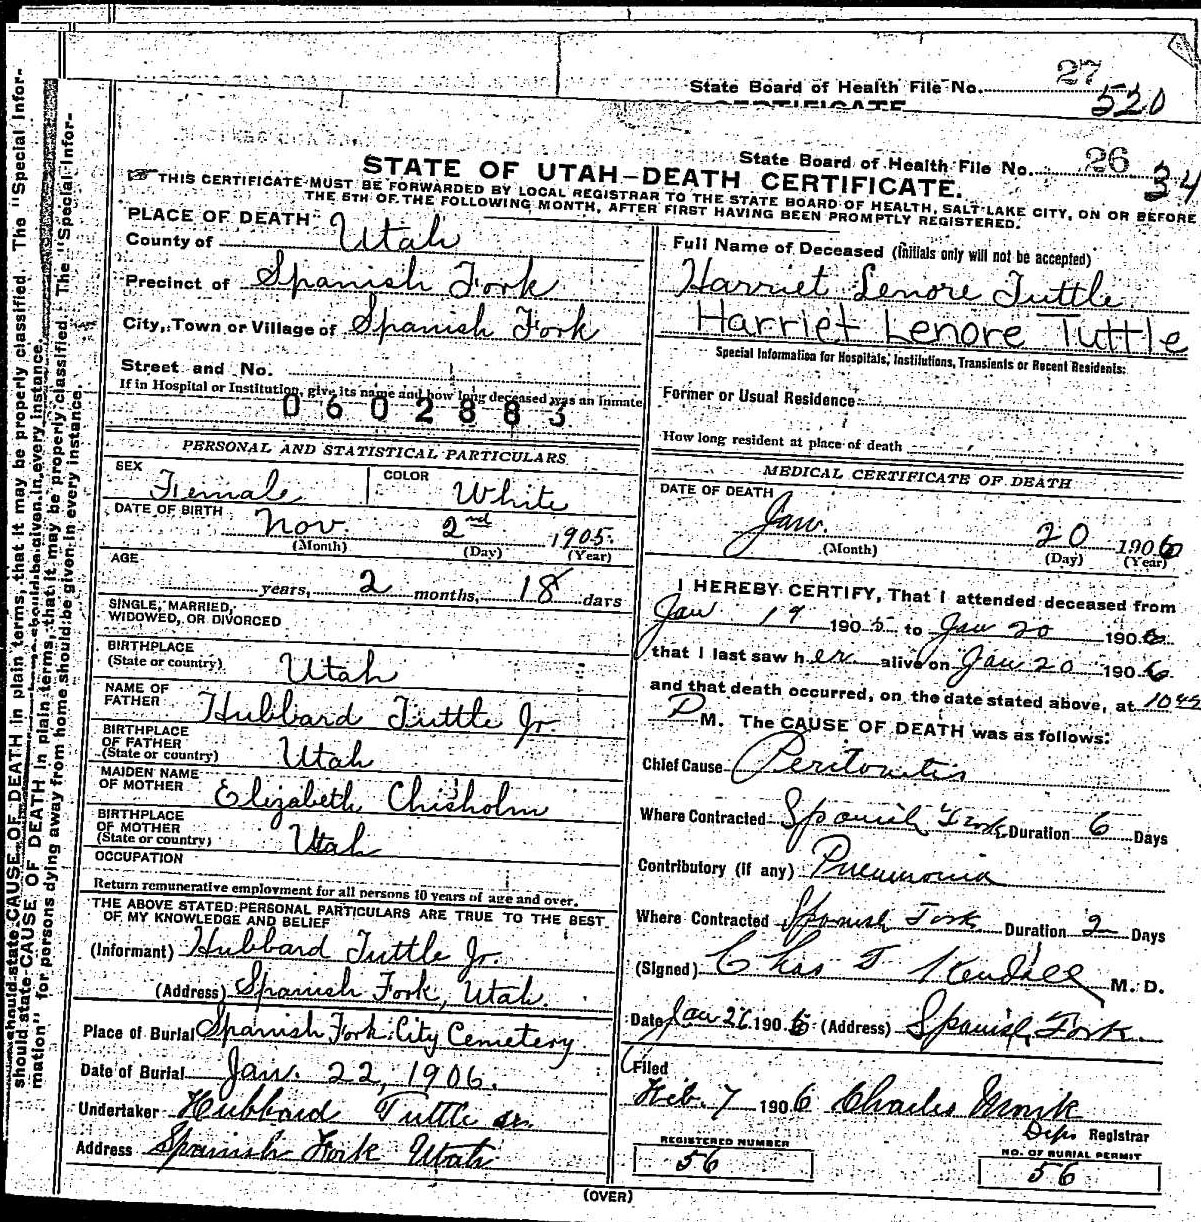 State Board of Health File No. 27
520
CERTIFICATE
State Board of Health File No. 26
34
STATE OF UTAH—DEATH CERTIFICATE.
THIS CERTIFICATE MUST BE FORWARDED BY LOCAL REGISTRAR TO THE STATE BOARD OF HEALTH, SALT LAKE CITY, ON OR BEFORE
THE 5TH OF THE FOLLOWING MONTH, AFTER FIRST HAVING BEEN PROMPTLY REGISTERED.
PLACE OF DEATH
County of Utah
Precinct of Spanish Fork
City, Town or Village of Spanish Fork
Street and No.
If in Hospital or Institution, give its name and how long deceased was an Inmate
0602883
PERSONAL AND STATISTICAL PARTICULARS
SEX Female COLOR White
DATE OF BIRTH Nov. 2nd 1905.
(Month) (Day) (Year)
AGE
years, 2 months, 18 days
SINGLE, MARRIED,
WIDOWED, OR DIVORCED
BIRTHPLACE
(State or country) Utah
NAME OF
FATHER Hubbard Tuttle Jr.
BIRTHPLACE
OF FATHER
(State or country) Utah
MAIDEN NAME
OF MOTHER Elizabeth Chisholm
BIRTHPLACE
OF MOTHER
(State or country) Utah
OCCUPATION
Return remunerative employment for all persons 10 years of age and over.
THE ABOVE STATED PERSONAL PARTICULARS ARE TRUE TO THE BEST
OF MY KNOWLEDGE AND BELIEF
(Informant) Hubbard Tuttle Jr.
(Address) Spanish Fork, Utah.
Place of Burial Spanish Fork City Cemetery
Date of Burial Jan. 22, 1906.
Undertaker Hubbard Tuttle sr.
Address Spanish Fork Utah
Full Name of Deceased (Initials only will not be accepted)
Harriet Lenore Tuttle
Harriet Lenore Tuttle
Special Information for Hospitals, Institutions, Transients or Recent Residents:
Former or Usual Residence
How long resident at place of death
MEDICAL CERTIFICATE OF DEATH
DATE OF DEATH
Jan. 20 1906
(Month) (Day) (Year)
I HEREBY CERTIFY, That I attended deceased from
Jan 19 1905 to Jan 20 1906
that I last saw her alive on Jan 20 1906
and that death occurred, on the date stated above, at
P M. The CAUSE OF DEATH was as follows:
Chief Cause Peritonitis
Where Contracted Spanish Fork Duration 6 Days
Contributory (if any) Pneumonia
Where Contracted Spanish Fork Duration 2 Days
(Signed) Chas T Kendall M. D.
Date Jan 1906 (Address) Spanish Fork.
Filed
Feb. 7 1906 Charles Monk
Dep. Registrar
REGISTERED NUMBER
56
NO. OF BURIAL PERMIT
56
(OVER)
should state CAUSE OF DEATH in plain terms, that it may be properly classified. The "Special Infor-
should state CAUSE OF DEATH in plain terms, that it may be properly classified. The "Special Infor-
mation" for persons dying away from home should be given in every instance.